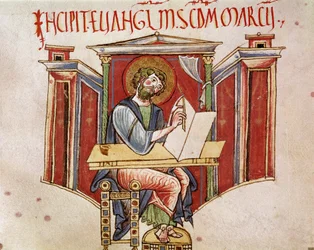 INCIPIT EVANGL IIS SCDM MARCU